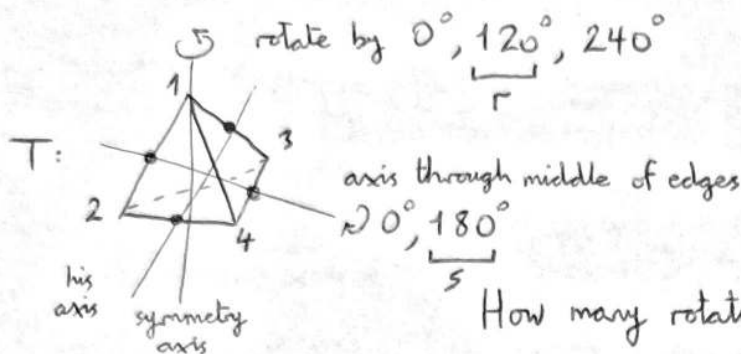 rotate by 0°, 120°, 240°
r
1
3
T:
axis through middle of edges
2
4
0°, 180°
s
his
axis
symmetry
axis
How many rotat